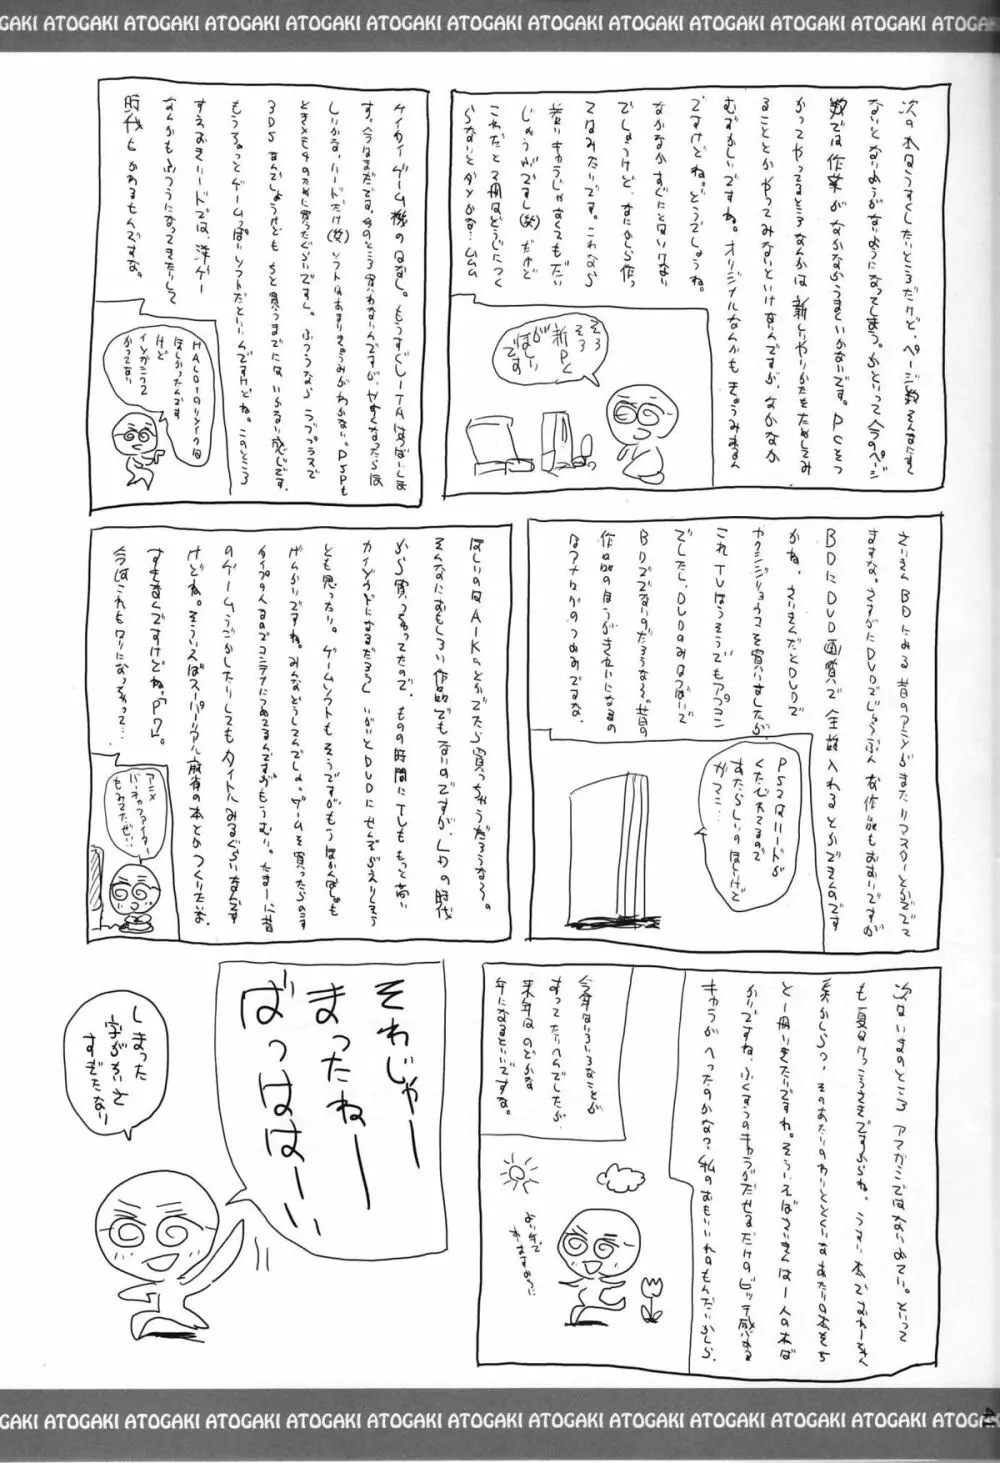 ATOGAKI ATOGAKI ATOGAKI ATOGAKI ATOGAKI ATOGAKI ATOGAKI ATOGAKI ATOGAKI
次の本はうすくしたいところだけど、ページ数そんなにすく
ないとないようがないようになってしまう。かといって今のページ
数では作業がなかなかうまくいかないです。PCをつ
かってやってるところなんかは新しいやりかたをためしてみ
ることとかやってみないといけないんですが、なかなか
むずかしいですね。オリジナルなんかもきょうみあるん
ですけどね。どうでしょうね。
なかなかすぐにとはいけない
でしょうけど、なにかしら作っ
てはみたいです。これなら
若いキャラじゃなくてもだい
じょうぶですし(笑)だけど
これだと2冊はどうじにつく
らないとダメかな…ムムム
そろ
そろ
新PC
が
ほしい
です
ケイタイゲーム機のはなし。もうすぐ
す。今はまだです。今のところ買わないんですが、やすくなったらほ
しいかな、ハードだけ(笑)ソフトはあまりきょうみがわかない。PSPも
ときメモ4のために買ったぐらいですし。ふつうならラブプラスで
3DSなんでしょうけども ちと買うまでにはいかない感じです。
もうちょっとゲームっぽいソフトだといいんですけどね。このところ
すえおきハードでは、洋ゲー
なんかもふつうになってきたりして
時代もかあるもんですな。
ほしかったんです
けど
かってない
さいきんBDにある昔のアニメがまたリマスターとかででて
ますな。さすがにDVDでじゅうぶんな作品もおおいですが
BDにDVD画質で全話入れるとかできんのです
かね。さいきんだとDVDで
ヤクシジリョウコを買いましたが、
これTVほうそうでもアプコン
でしたし、DVDのみはつばいで
BDででないのだろうな〜。昔の
作品のほうがきれいになるの
はアナログのつよみですな。
PS2はハードが
くたびれてるので
あたらしいのほしいけど
ガマン…
ほしいのはAIKaとかでたら買っちゃうだろうな〜。
そんなにおもしろい作品でもないのですが、LDの時代
から買っちゃってたので。ものの時間にTVももっと高い
カイゾウドになるだろうし いがいとDVDにせんぞがえりしそう
とも思ったり。ゲームソフトもそうですがもうほかんばしょも
げんかいですね。みんなどうしてんでしょ。ゲームを買ったらのこす
タイプの人なのでコンテナにつめてるんですがもうムリ。たまーに昔
のゲームうごかしたりしてもタイトルみるぐらいなんです
けどね。そういえばスーパーリアル麻雀の本とかつくりたいな。
すきなんですけどね、P7。
今はこれもロリになっちゃって…
アニメ
バーチャファイター
もみてたぜい…
次はいまのところアマガミではないよてい。といって
も夏はけっこうさきですからね。うすい本でおわーきく
と一冊いきたいですね。そういえばさいきんは一人の本ば
かりですね、ふくすうのキャラがだせるだけのビッチ感ある
キャラがへったのかな？私のおもいいれのもんだいかしら。
今年はいろいろなことが
あってたいへんでしたが、
来年はのどかな
年になるといいですな。
よい年で
ありますように
それじゃー
まったねー
ばっははーい
しまった
字がちいさ
すぎたなり
GAKI ATOGAKI ATOGAKI ATOGAKI ATOGAKI ATOGAKI ATOGAKI ATOGAKI ATOGAKI ATOGAKI
41